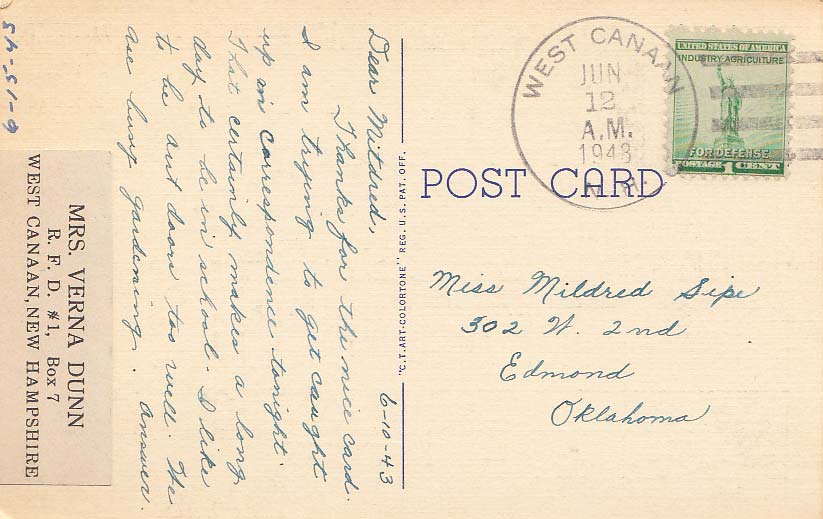 6-15-43
MRS. VERNA DUNN
R. F. D. #1, Box 7
WEST CANAAN, NEW HAMPSHIRE
6-10-43
Dear Mildred,
Thanks for the nice card.
I am trying to get caught
up in correspondence tonight.
That certainly makes a long
day to be in school. I like
to be out doors too well. We
are busy gardening. Answer.
"C.T. ART-COLORTONE" REG. U.S. PAT. OFF.
WEST CANAAN
JUN
12
A.M.
1943
N.H.
UNITED STATES OF AMERICA
INDUSTRY AGRICULTURE
FOR DEFENSE
POSTAGE 1 CENT
POST CARD
Miss Mildred Sipe
302 W. 2nd
Edmond
Oklahoma